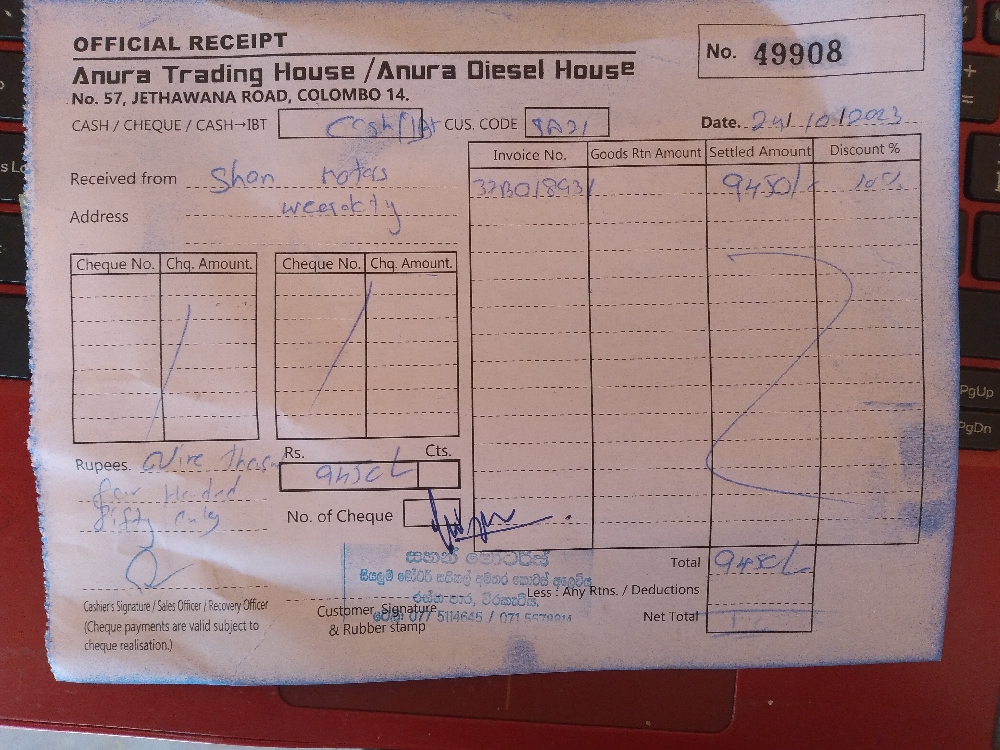 OFFICIAL RECEIPT
No. 49908
Anura Trading House / Anura Diesel House
No. 57, JETHAWANA ROAD, COLOMBO 14.
CASH / CHEQUE / CASH→IBT Cash/IBT CUS. CODE
Date. 24/10/2023
Invoice No. Goods Rtn Amount Settled Amount Discount %
Received from Shan motors
9450/- 10%
Address
Cheque No. Chq. Amount. Cheque No. Chq. Amount.
Rupees. Nine
Rs. Cts.
9450/-
four
fifty only
No. of Cheque
සහන් මෝටර්ස්
සියලුම මෝටර් සයිකල් අමතර කොටස් අලෙවිය
Total 9450/-
Less : Any Rtns. / Deductions
Net Total
Cashier's Signature / Sales Officer / Recovery Officer
(Cheque payments are valid subject to
cheque realisation.)
Customer Signature
& Rubber stamp
077 5114645 /
PgUp
PgDn